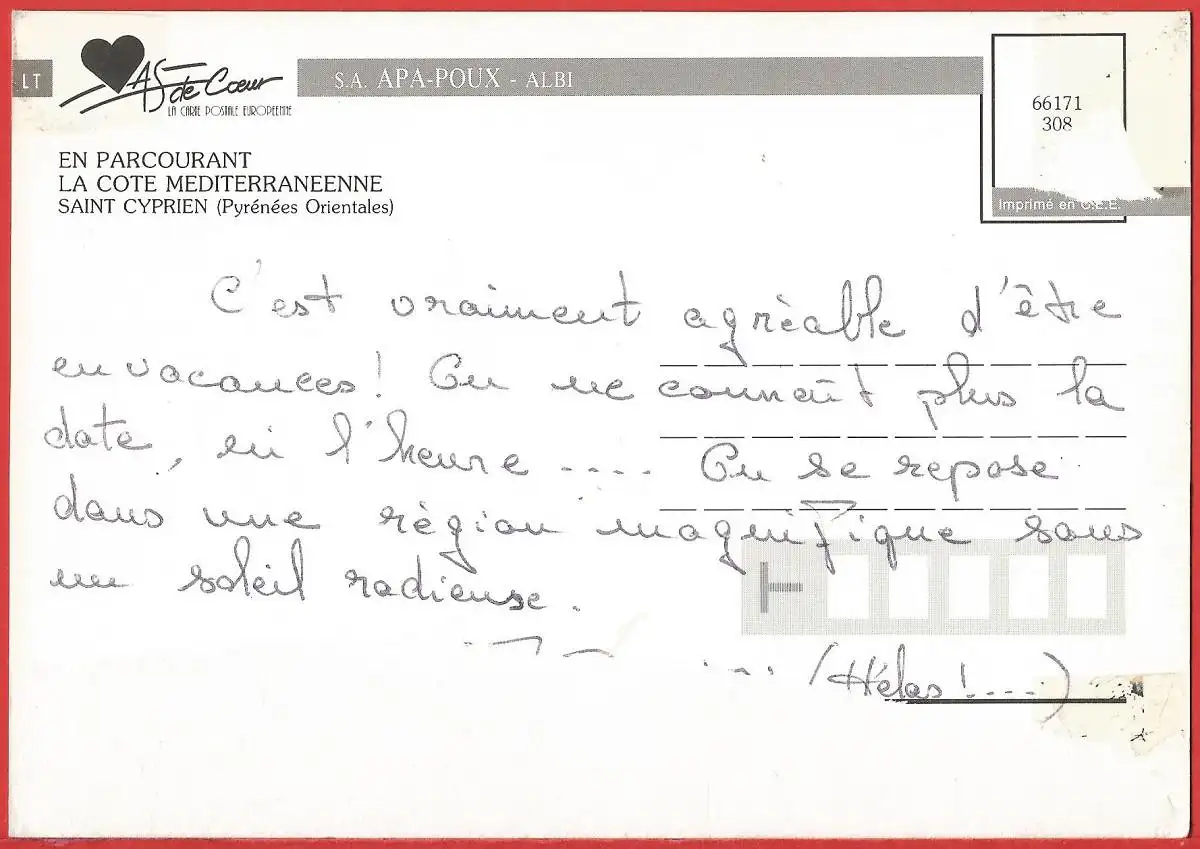 LT
AS de Cœur
LA CARTE POSTALE EUROPEENNE
S.A. APA-POUX - ALBI
66171
308
Imprimé en C.E.E.
EN PARCOURANT
LA COTE MEDITERRANEENNE
SAINT CYPRIEN (Pyrénées Orientales)
C'est vraiment agrèable d'être
en vacances! On ne connaît plus la
date, ni l'heure .... On se repose
dans une règion magnifique sous
un soleil radieuse.
(Hélas!....)